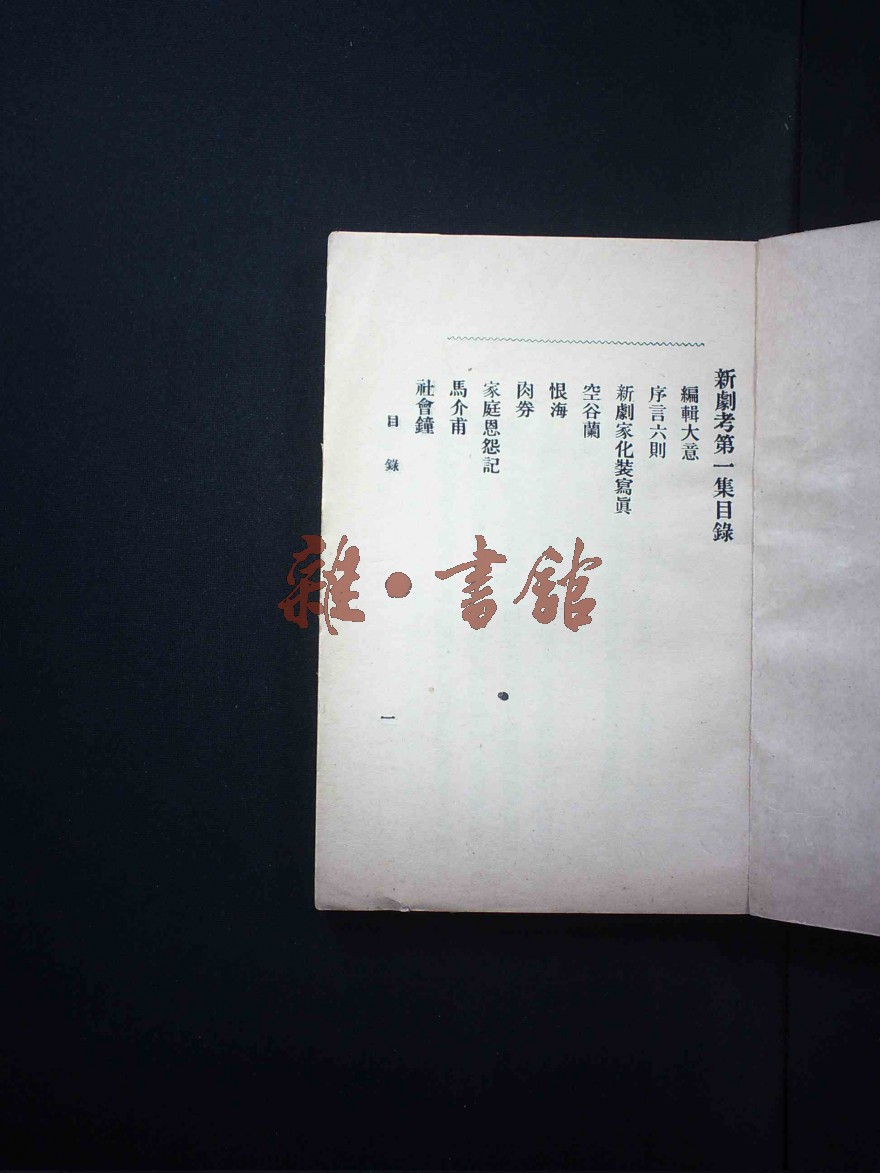 新劇考第一集目錄
編輯大意
序言六則
新劇家化裝寫眞
空谷蘭
恨海
肉券
家庭恩怨記
馬介甫
社會鐘
目錄
一
雜·書館